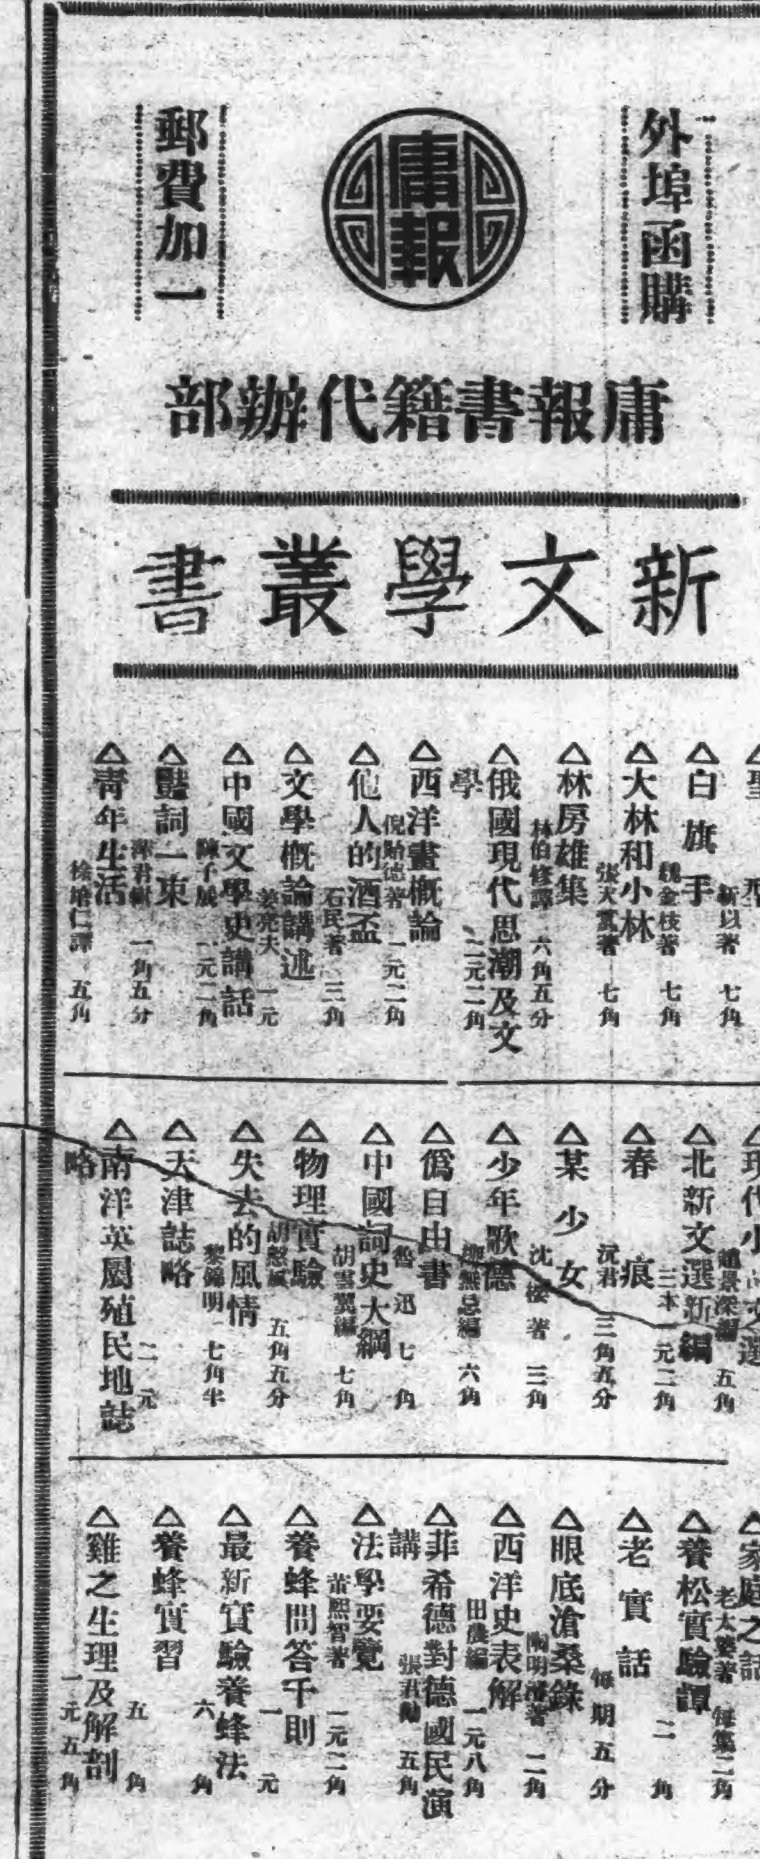 外埠函購
庸報
郵費加一
庸報書籍代辦部
新文學叢書
聖
靳以著 七角
△白旗手
魏金枝著 七角
△大林和小林
張天翼著 七角
△林房雄集
林伯修譯 六角五分
△俄國現代思潮及文
學 二元二角
△西洋畫概論
倪貽德著 一元二角
△他人的酒盃
石民著 三角
△文學概論講述
姜亮夫 一元
△中國文學史講話
陳子展 一元二角
△豔詞一束
一角五分
△青年生活
徐培仁譯 五角
△現代小品文選
趙景深編 五角
△北新文選新編
三本一元二角
△春痕
沅君 三角五分
△某少女
沈 著 三角
△少年歌德
六角
△偽自由書
魯迅 七角
△中國詞史大綱
胡雲翼編 七角
△物理實驗
五角五分
△失去的風情
黎錦明 七角半
△天津誌略
二元
△南洋英屬殖民地誌
略
△家庭之話
老太婆著 每集二角
△養松實驗譚
二角
△老實話
每期五分
△眼底滄桑錄
二角
△西洋史表解
田農編 一元八角
△菲希德對德國民演
講 張君勱 五角
△法學要覽
董熙智著 一元二角
△養蜂問答千則
一元
△最新實驗養蜂法
六角
△養蜂實習
五角
△雞之生理及解剖
一元五角